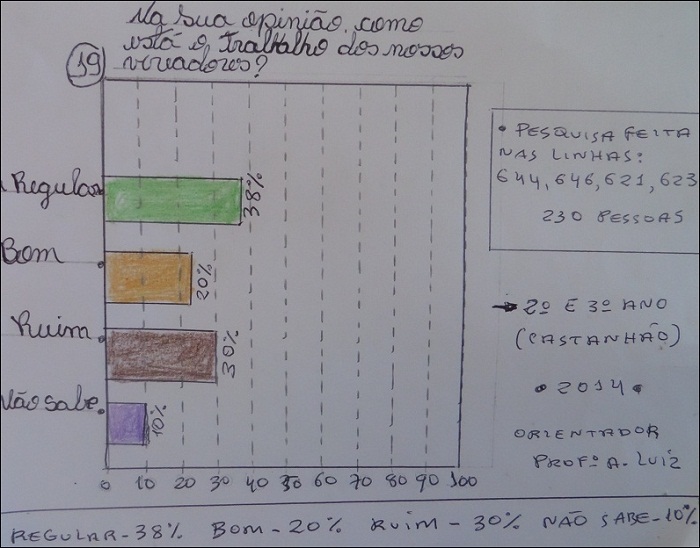 Na sua opinião, como
está o trabalho dos nossos
vereadores?
19
Regular
38%
Bom
20%
Ruim
30%
Não sabe
10%
0 10 20 30 40 50 60 70 80 90 100
• PESQUISA FEITA
NAS LINHAS:
644, 646, 621, 623
230 PESSOAS
→ 2º E 3º ANO
(CASTANHÃO)
• 2014 •
ORIENTADOR
PROFº A. LUIZ
REGULAR - 38% BOM - 20% RUIM - 30% NÃO SABE - 10%